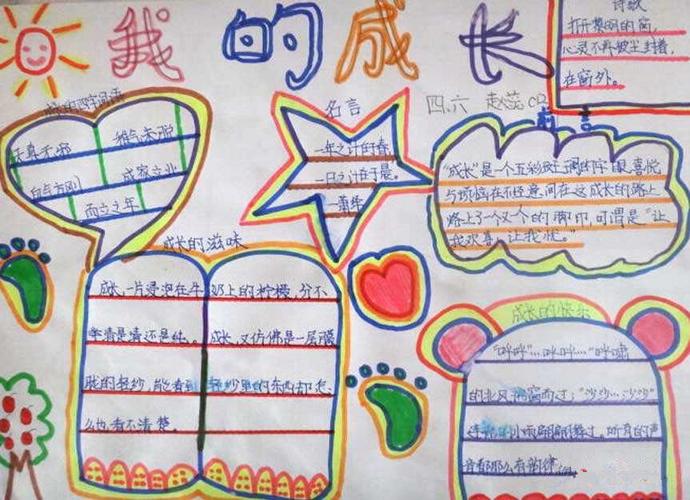 我的成长
诗歌
打开紧闭的窗,
心灵不再被尘封着,
在窗外。
成长的四字词语
天真无邪 稚气未脱
血气方刚 成家立业
而立之年
名言
一年之计在于春,
一日之计在于晨。
——萧绎
四、六 赵蕊
前言
"成长"是一个五彩斑斓的字眼,喜悦
与烦恼在不经意间在这成长的路上
踏上了一个又一个的脚印,可谓是"让
我欢喜,让我忧。"
成长的滋味
成长,一片浸泡在牛奶上的柠檬,分不
清是清还是纯。成长,又仿佛是一层朦
胧的轻纱,能看到轻纱里的东西却怎
么也看不清楚。
成长的快乐
"哗哗"…哗哗…"呼啸
的北风席卷而过;"沙沙…沙沙"
小雨
音都那么有韵律